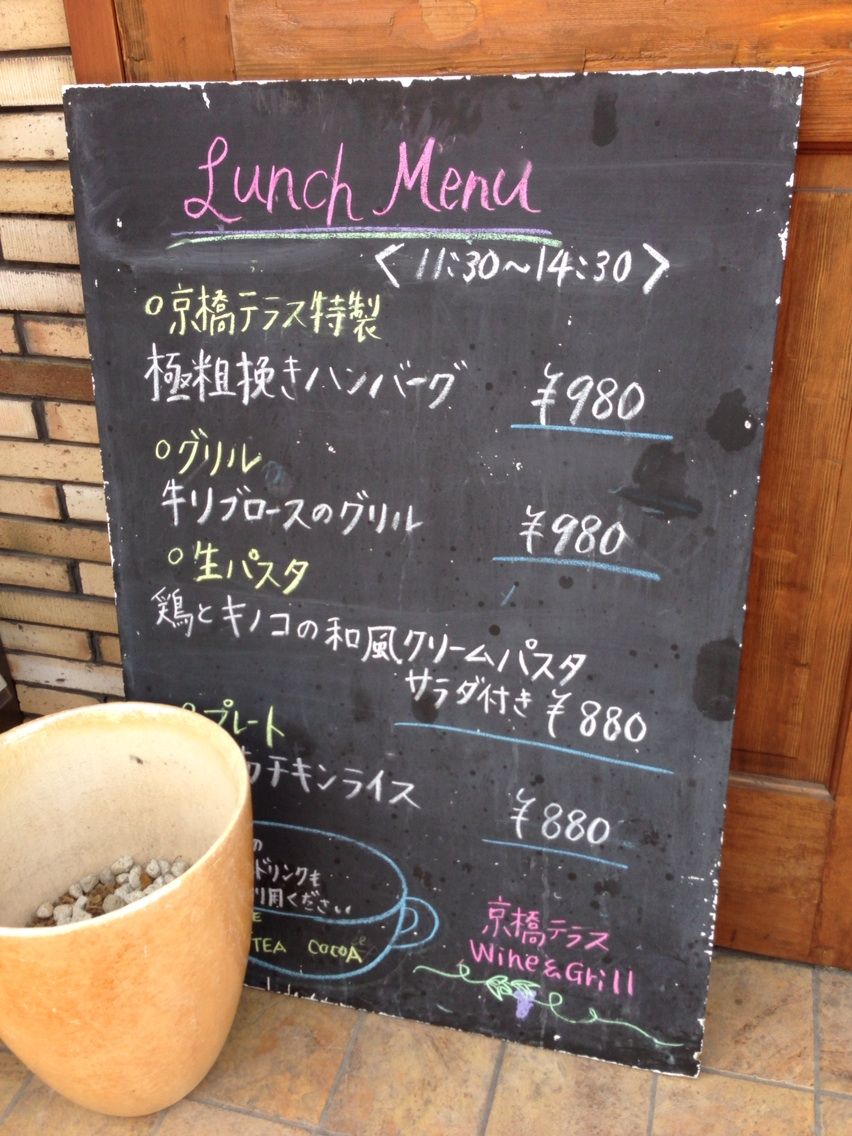 Lunch Menu
<11:30~14:30>
○京橋テラス特製
極粗挽きハンバーグ ¥980
○グリル
牛リブロースのグリル ¥980
○生パスタ
鶏とキノコの和風クリームパスタ
サラダ付き ¥880
プレート
チキンライス ¥880
の
ドリンクも
利用ください
TEA COCOA
京橋テラス
Wine&Grill